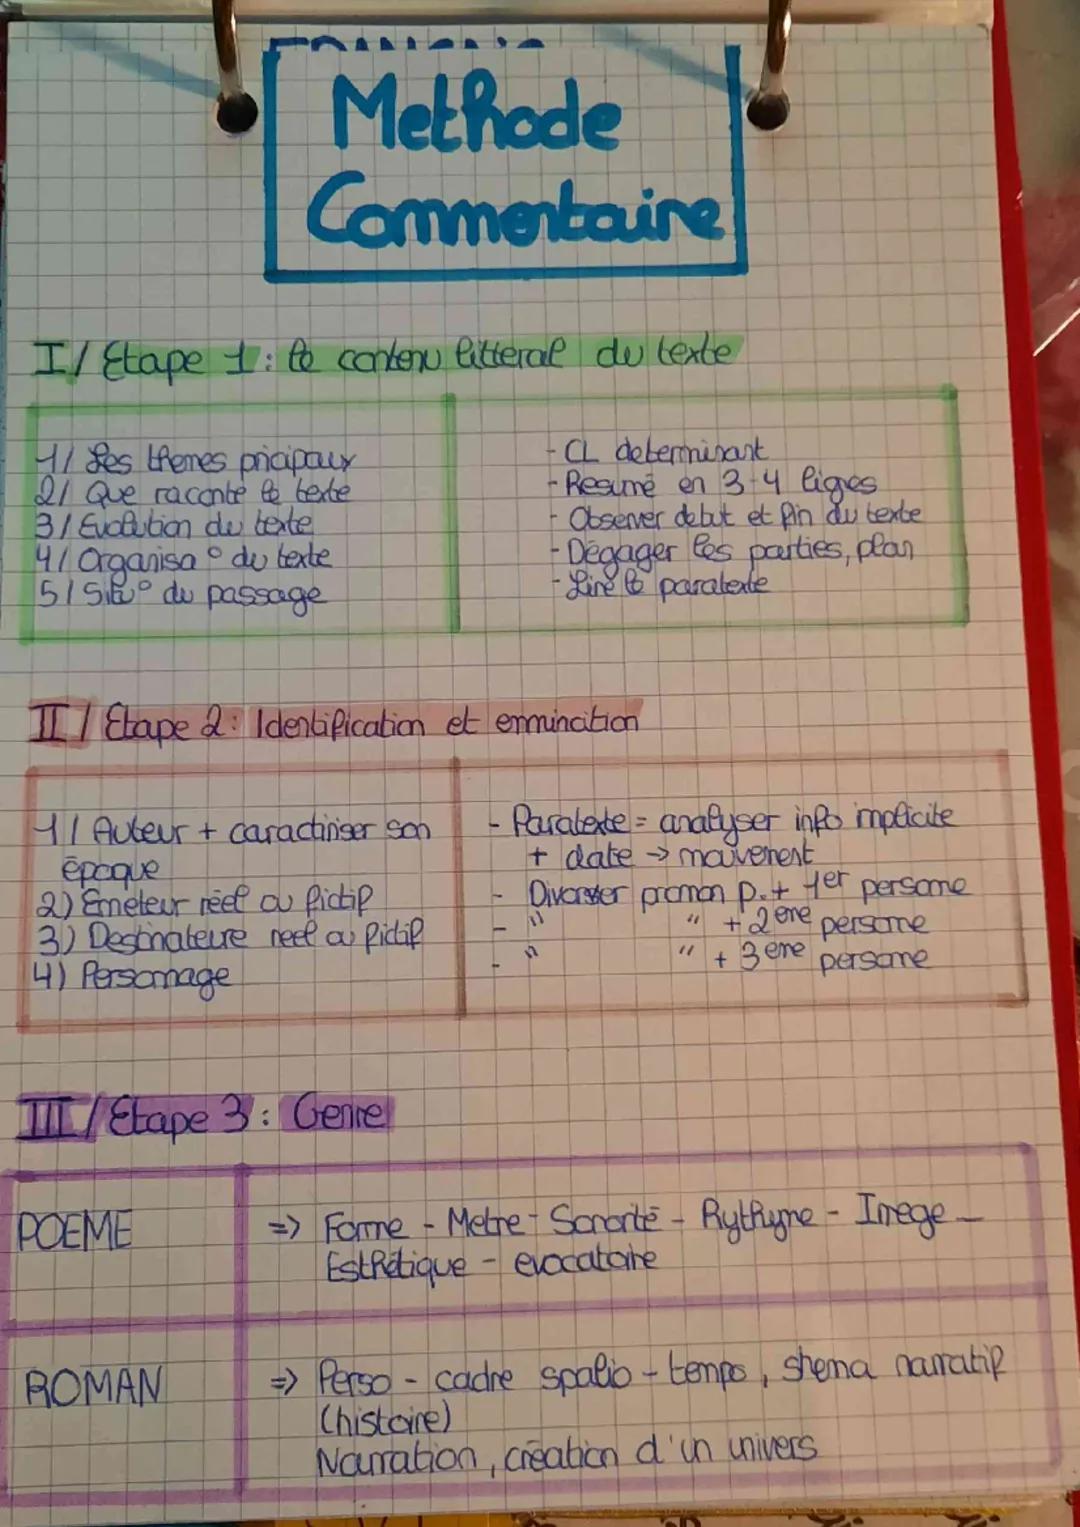 FRANÇAIS
Methode
Commentaire
I/ Etape 1 : le contenu litteral du texte
1/ Les themes pricipaux
2/ Que raconte le texte
3/ Evolution du texte
4/ Organisa° du texte
5/ Situ° du passage
- CL determinant
- Resumé en 3-4 lignes
- Observer debut et fin du texte
- Dégager les parties, plan
- Lire le paratexte
II/ Etape 2 : Identification et ennoncition
1/ Auteur + caractériser son
époque
2) Emeteur réel ou fictif
3) Destinateure reel ou fictif
4) Personnage
- Paratexte = analyser info implicite
+ date → mouvement
- pronom p. + 1er personne
- " " + 2eme personne
- " " + 3eme personne
III/ Etape 3 : Genre
POEME
=> Forme - Metre - Sonorité - Rythyme - Imege -
Esthétique - evocatoire
ROMAN
=> Perso - cadre spatio - temps, shema narratif
(histoire)
Narration, création d'un univers